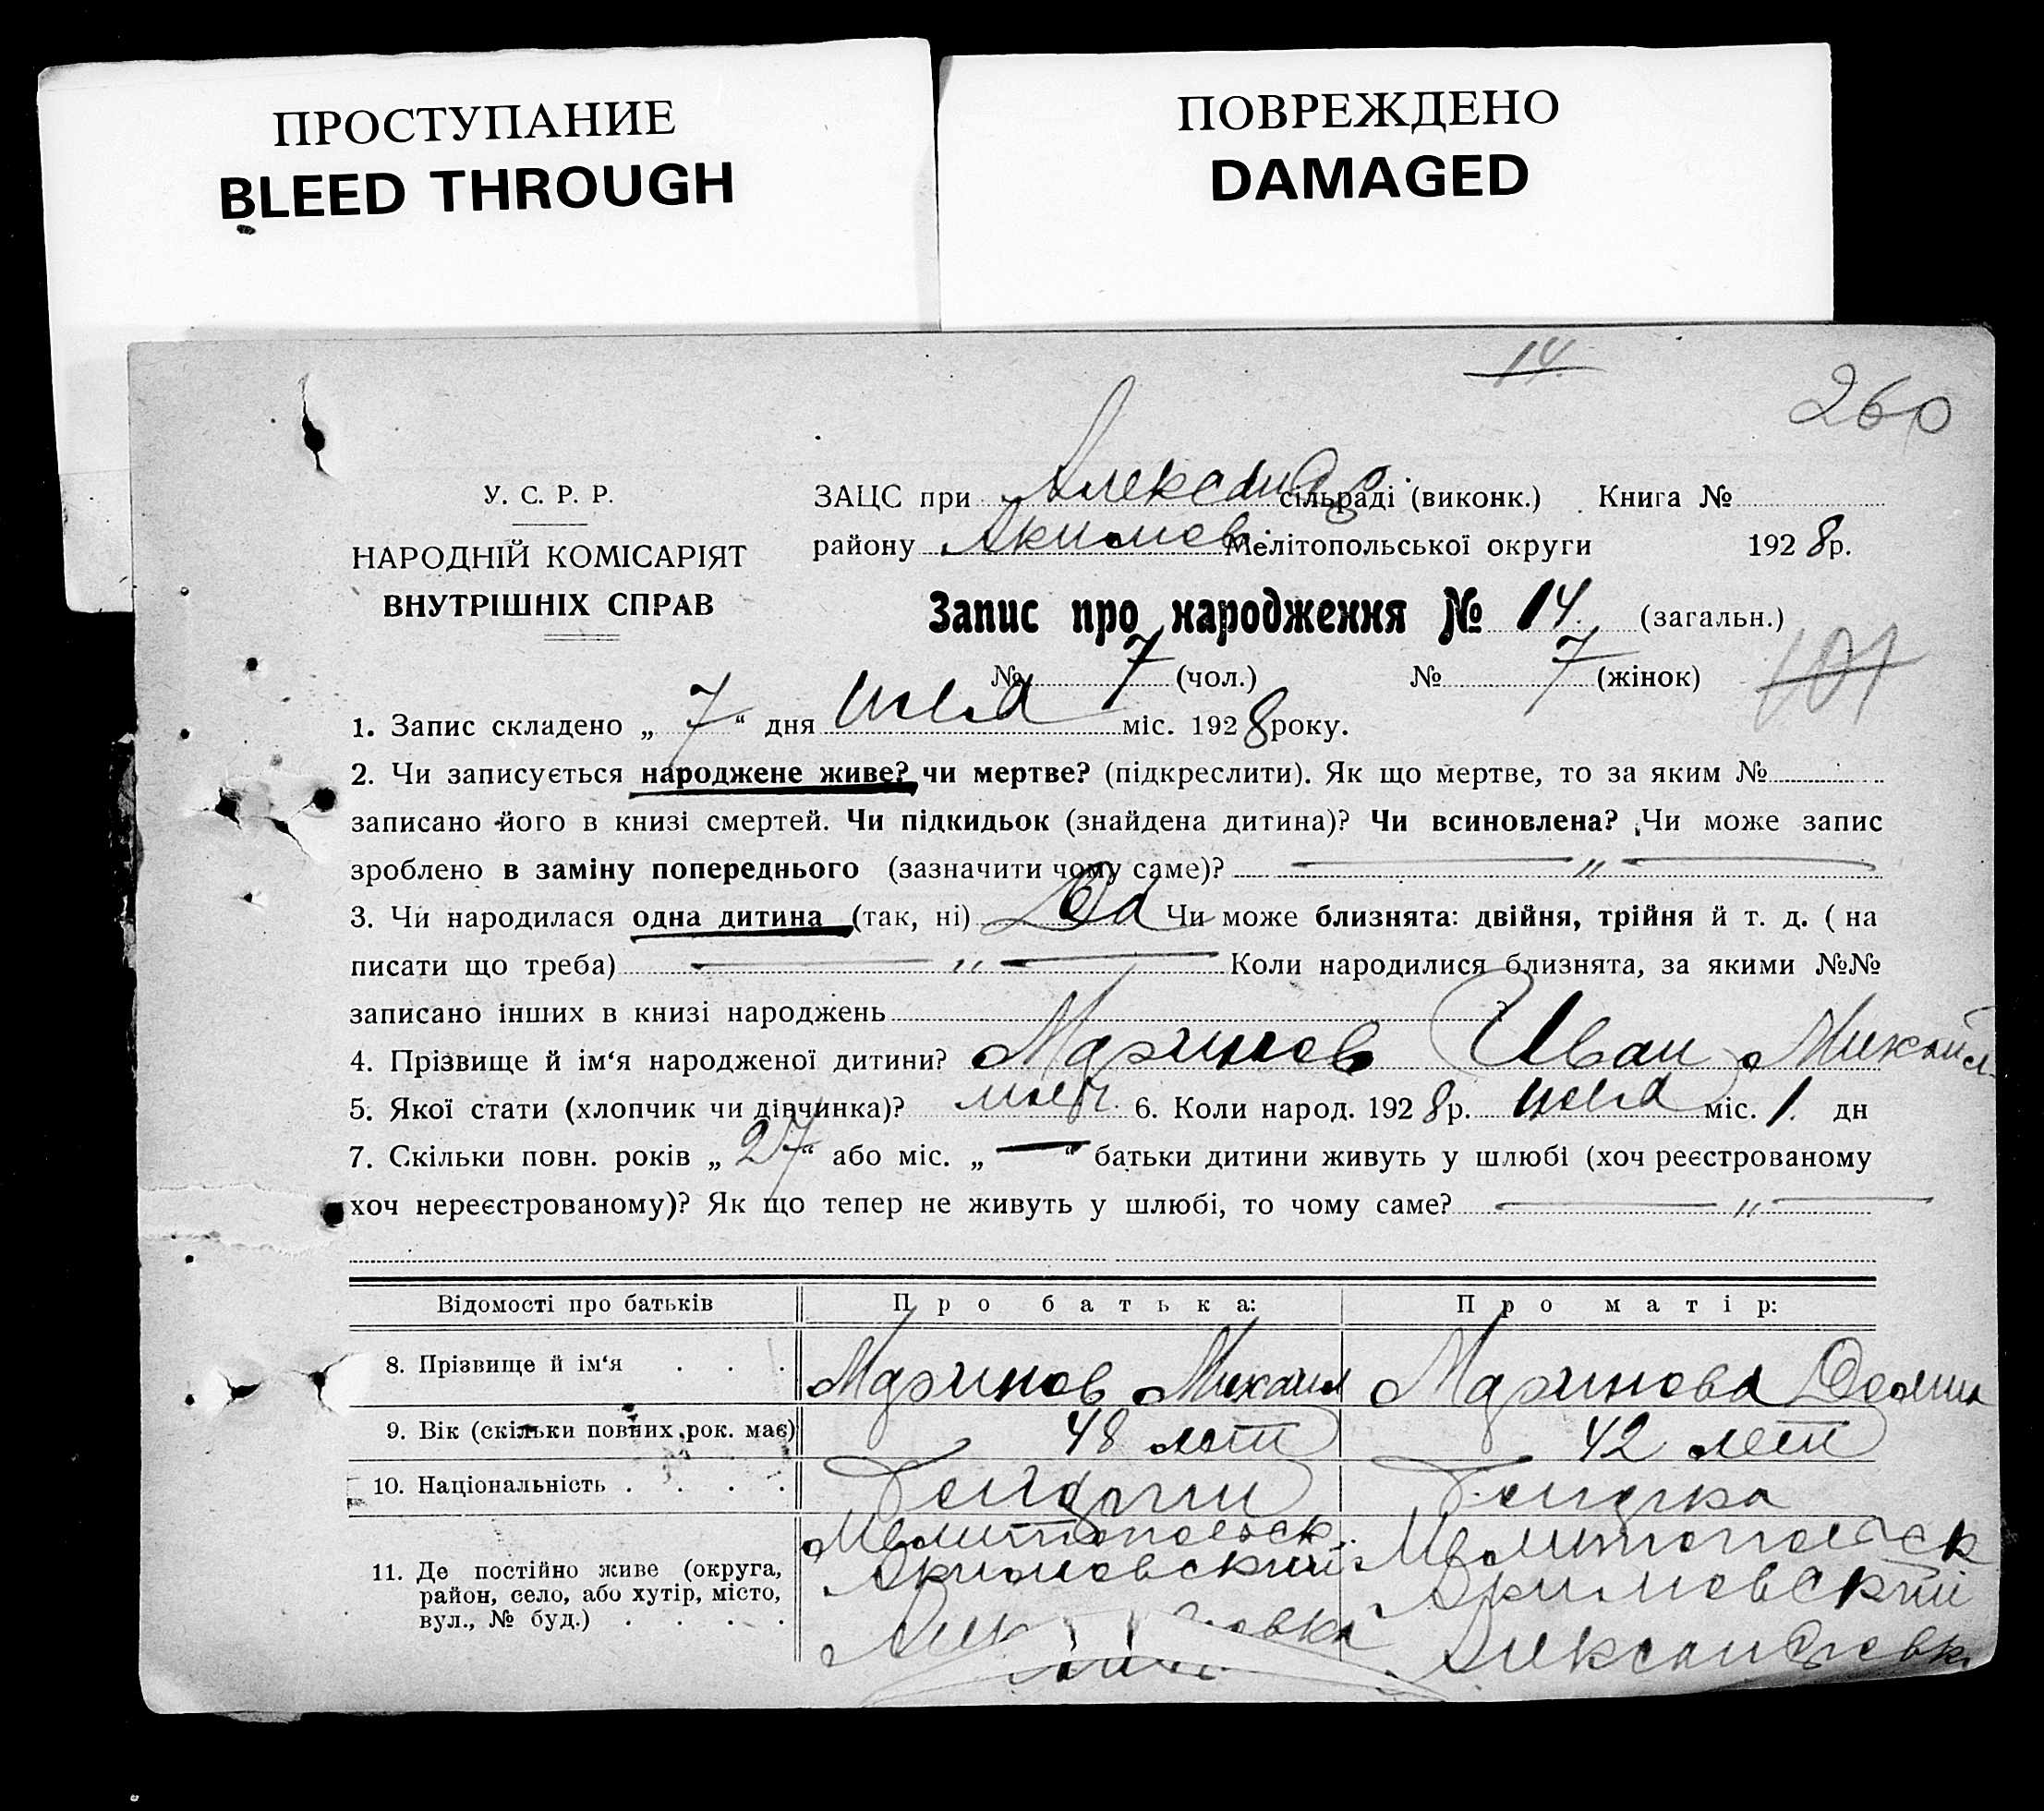 ПРОСТУПАНИЕ
BLEED THROUGH
ПОВРЕЖДЕНО
DAMAGED
14.
260
У. С. Р. Р.
НАРОДНІЙ КОМІСАРІЯТ
ВНУТРІШНІХ СПРАВ
ЗАЦС при Александр. сільраді (виконк.) Книга №
району Акимов. Мелітопольської округи 1928 р.
Запис про народження № 14. (загальн.)
№ 7 (чол.) № 7 (жінок) 101
1. Запис складено „ 7 “ дня міс. 1928 року.
2. Чи записується народжене живе? чи мертве? (підкреслити). Як що мертве, то за яким №
записано його в книзі смертей. Чи підкидьок (знайдена дитина)? Чи всиновлена? Чи може запис
зроблено в заміну попереднього (зазначити чому саме)? — „ —
3. Чи народилася одна дитина (так, ні) Да Чи може близнята: двійня, трійня й т. д. ( на
писати що треба) — „ — Коли народилися близнята, за якими №№
записано інших в книзі народжень
4. Прізвище й ім‘я народженої дитини? Маринов Иван Михаил
5. Якої стати (хлопчик чи дівчинка)? 6. Коли народ. 1928 р. міс. 1. дн
7. Скільки повн. років „ 27 “ або міс. „ — “ батьки дитини живуть у шлюбі (хоч реєстрованому
хоч нереєстрованому)? Як що тепер не живуть у шлюбі, то чому саме? — „ —
Відомості про батьків Про батька: Про матір:
8. Прізвище й ім‘я . . . Маринов Михаил Маринова
9. Вік (скільки повних рок. має) 48 лет 42 лет
10. Національність . . . .
11. Де постійно живе (округа,
район, село, або хутір, місто,
вул., № буд.) . . . .
Мелитопольск. Мелитопольск
Акимовский Акимовский
Александровк